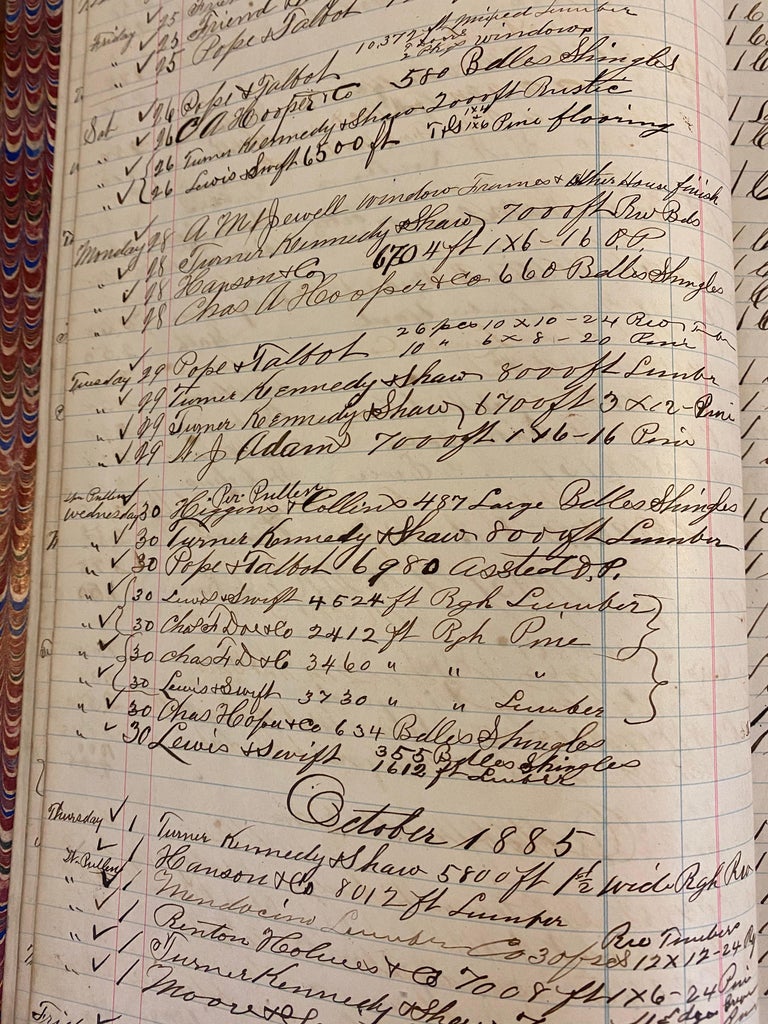 Friday 25 Friend
" 25 Pope & Talbot 10,372 ft Mixed Lumber
25 2 Pkgs Windows
Sat 26 Pope & Talbot 580 Bdles Shingles
" 26 C A Hooper & Co
" 26 Turner Kennedy & Shaw 2000 ft Rustic
" 26 Lewis & Swift 6500 ft T&G 1x6 Pine flooring
Monday 28 A M Jewell Window Frames & other House finish
" 28 Turner Kennedy & Shaw 7000 ft Rw Bds
" 28 Hanson & Co 6704 ft 1x6-16 O.P
" 28 Chas A Hooper & Co 660 Bdles Shingles
Tuesday 29 Pope & Talbot 26 pces 10 x 10 - 24 Rw
10 " 6 x 8 - 20 Pine
" 29 Turner Kennedy & Shaw 8000 ft Lumber
" 29 Turner Kennedy & Shaw 6700 ft 3 x 12 - Pine
" 29 W J Adams 7000 ft 1x6-16 Pine
Per Pullen
Wednesday 30 Higgins & Collins 487 Large Bdles Shingles
" 30 Turner Kennedy & Shaw 8000 ft Lumber
" 30 Pope & Talbot 6980 Assted O.P.
" 30 Lewis & Swift 4524 ft Rgh Lumber
" 30 Chas F Doe & Co 2412 ft Rgh Pine
" 30 Chas F D & C 3460 " " "
" 30 Lewis & Swift 3730 " " Lumber
" 30 Chas Hoper & Co 634 Bdles Shingles
" 30 Lewis & Swift 355 Bdles Shingles
1612 ft Lumber
October 1885
Thursday 1 Turner Kennedy & Shaw 5800 ft 1 1/2 wide Rgh Rw
" 1 Hanson & Co 8012 ft Lumber
" 1 Mendocino Lumber Co 30 pcs 12x12-24 Rw Timbers
" 1 Renton Holmes & Co 7008 ft 1x6-24 Pine
" 1 Turner Kennedy & Shaw
" 1 Moore &